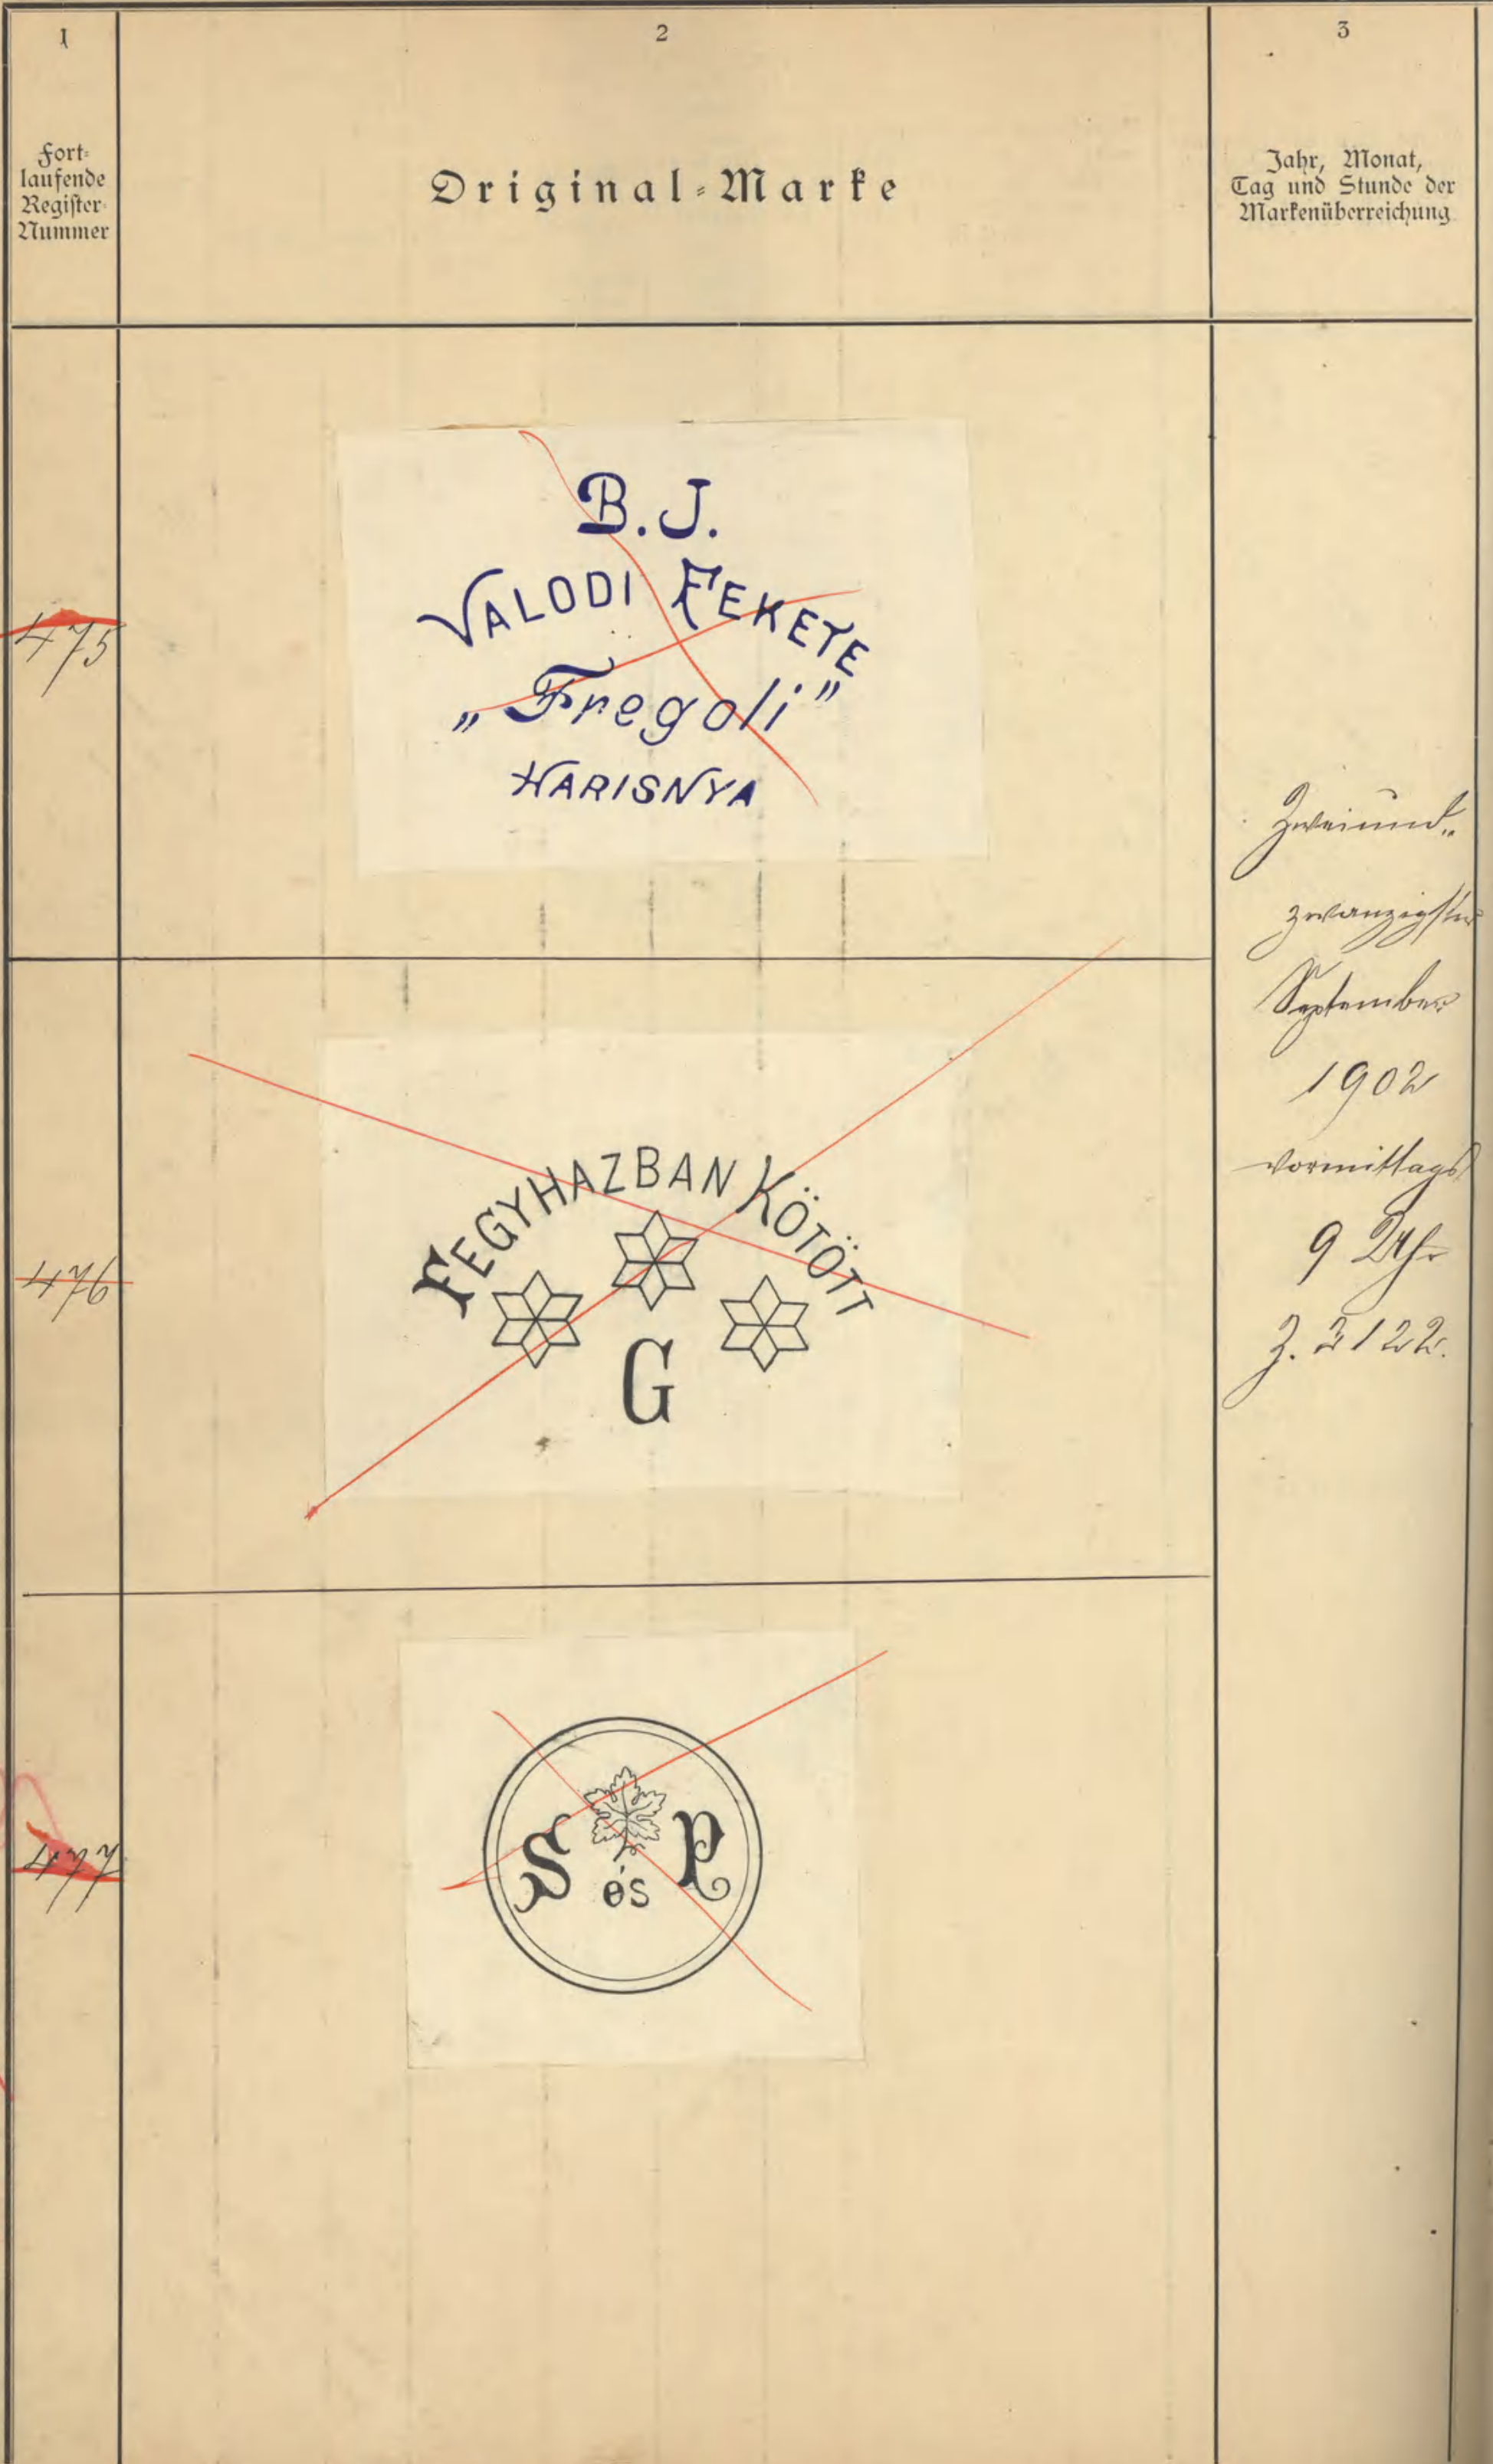 1
2
3
Fort-
laufende
Register-
Nummer
Original-Marke
Jahr, Monat,
Tag und Stunde der
Markenüberreichung
475
B.J.
VALODI FEKETE
„Fregoli”
HARISNYA
Zweiund-
zwanzigster
September
1902
vormittags
9 Uhr
Z. 3122.
476
FEGYHAZBAN KÖTÖTT
G
477
S és P